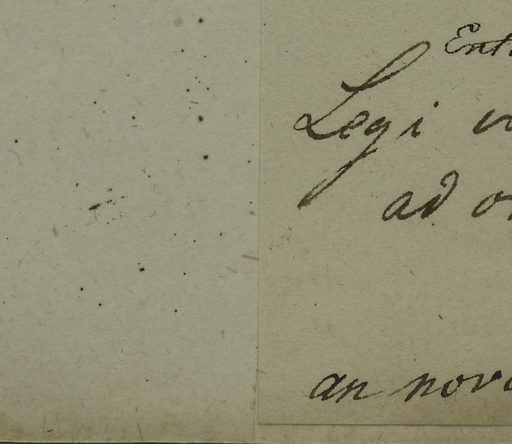 Ent
Legi
ad o
an nov